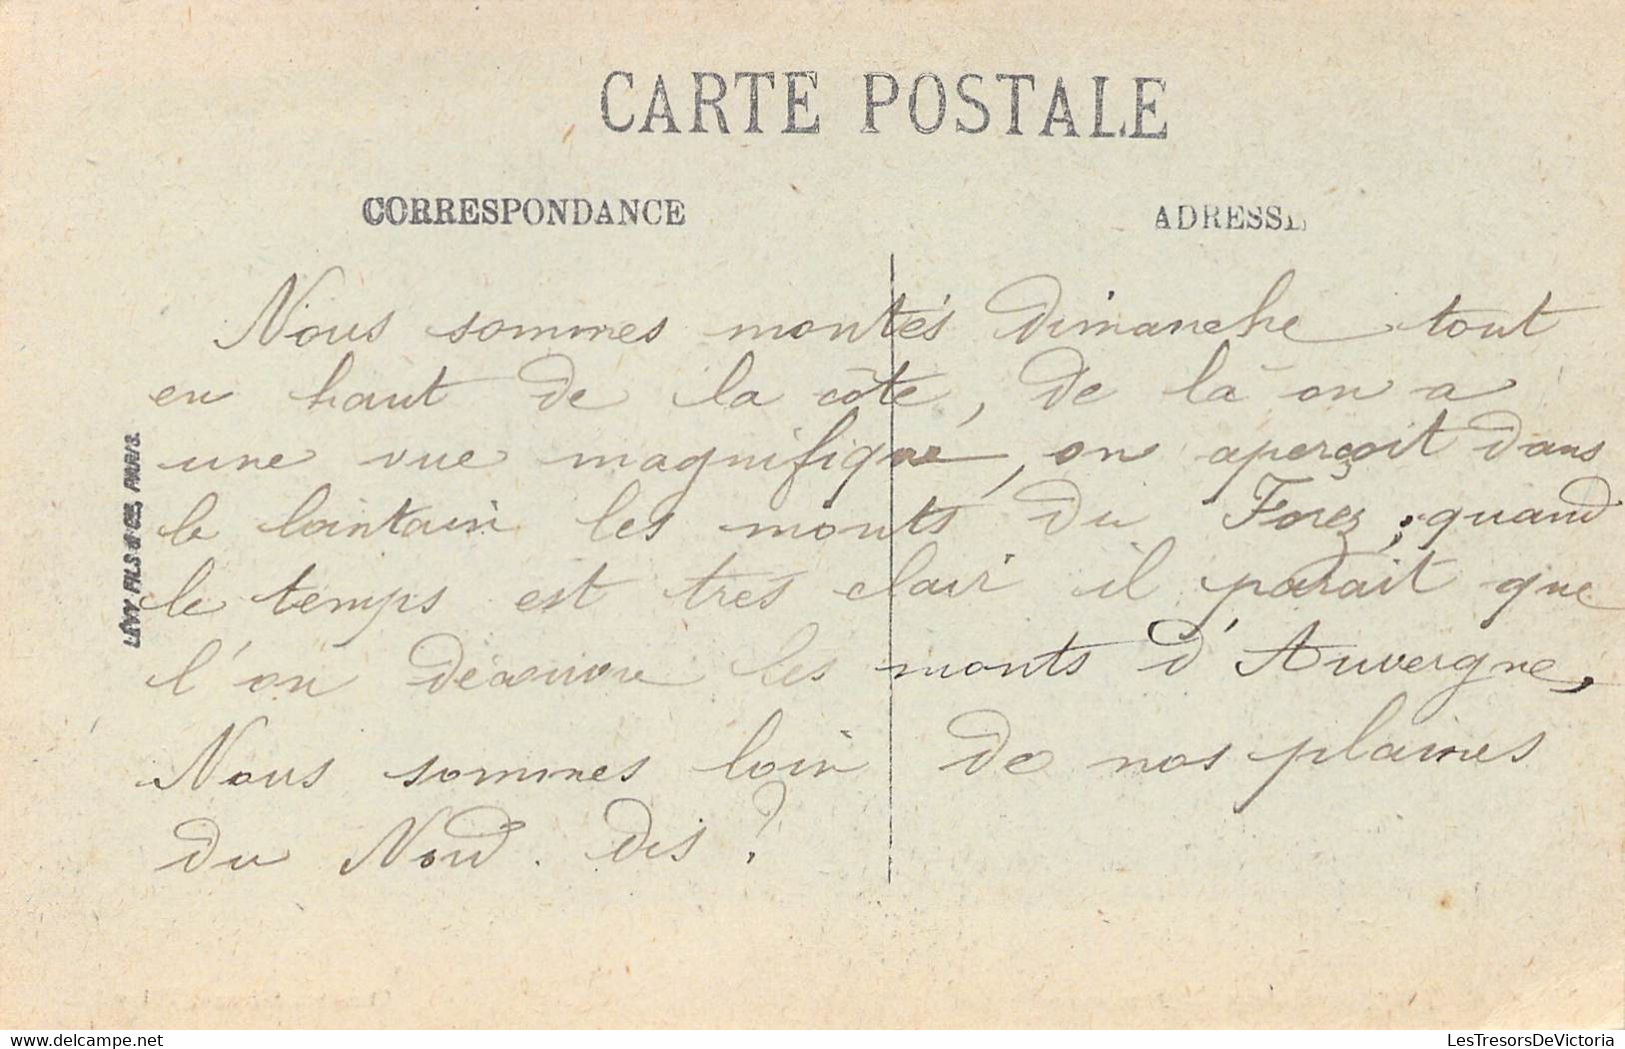 CARTE POSTALE
CORRESPONDANCE
ADRESSE
Nous sommes montés dimanche tout
en haut de la côte, de là on a
une vue magnifique, on aperçoit dans
le lointain les monts du Forez; quand
le temps est tres clair il parait que
l'on découvre les monts d'Auvergne,
Nous sommes loin de nos plaines
du Nord. dis ?
LÉVY FILS & CIE, PARIS.
delcampe.net
LesTresorsDeVictoria